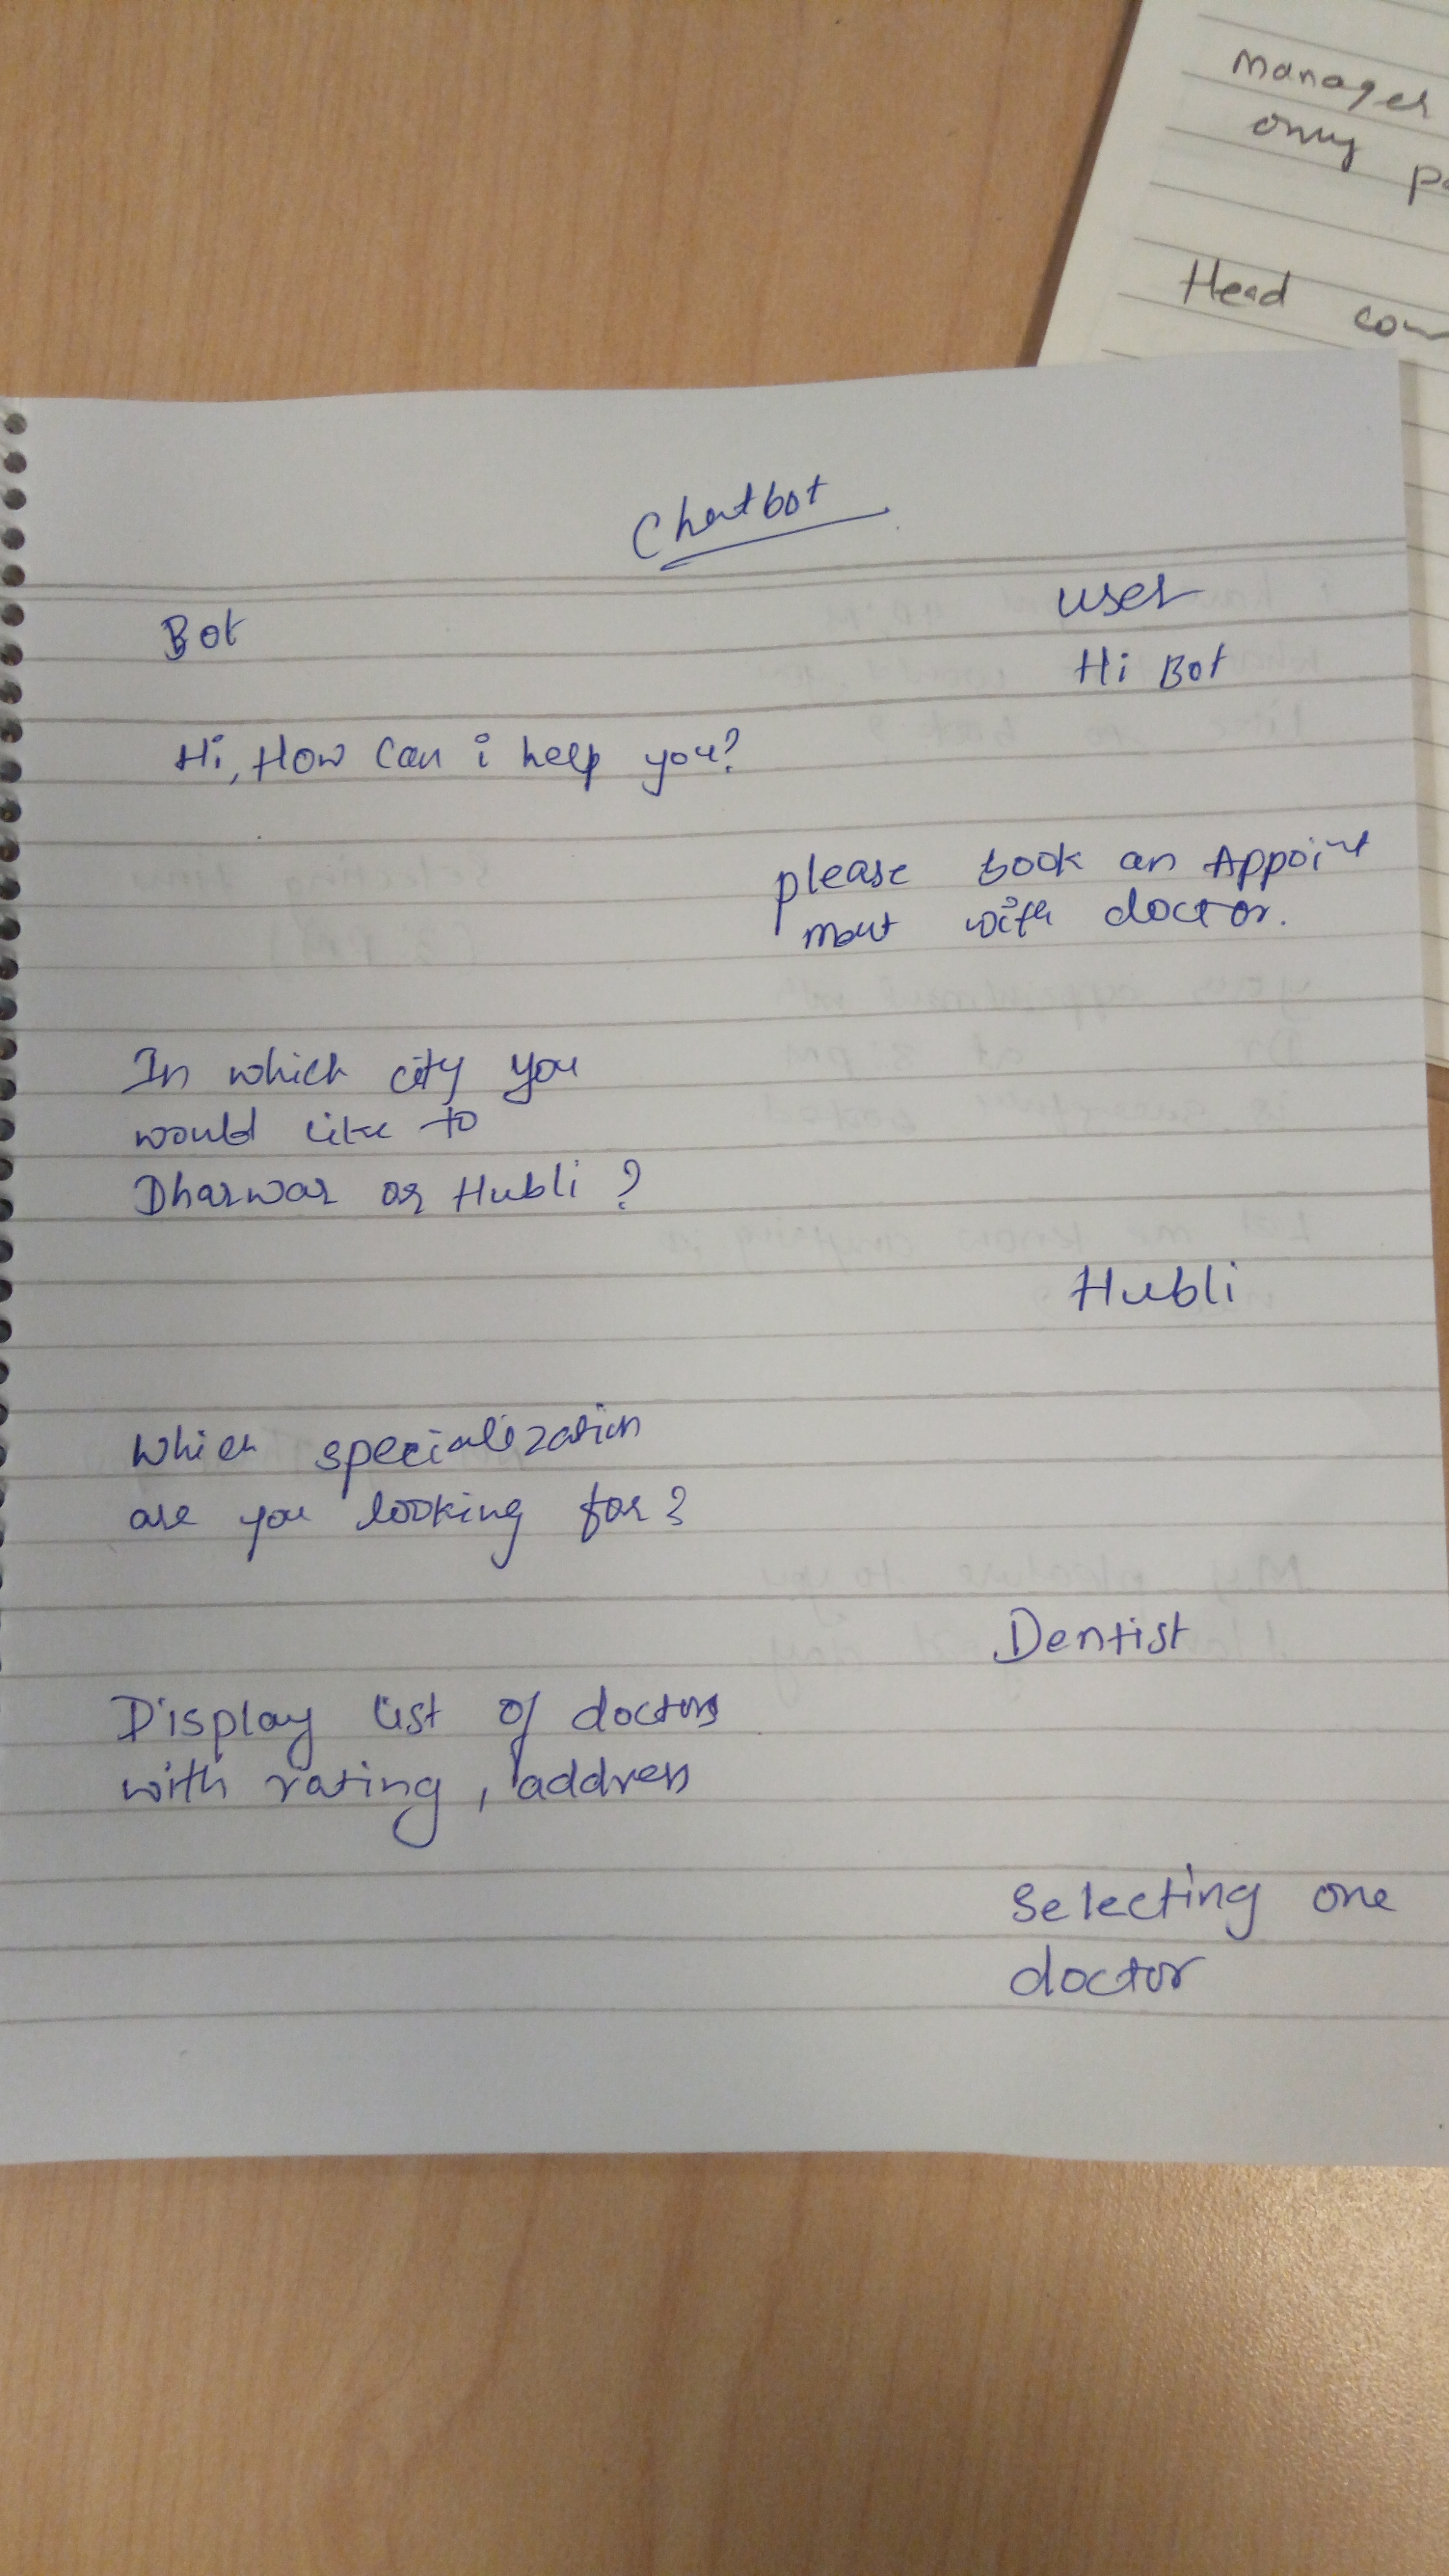 manager
only
Head
Chatbot
Bot
user
Hi Bot
Hi, How Can i help you?
please book an Appoint
ment with doctor.
In which city you
would like to
Dharwar or Hubli ?
Hubli
Which specialization
are you looking for?
Dentist
Display list of doctors
with rating, address
Selecting one
doctor